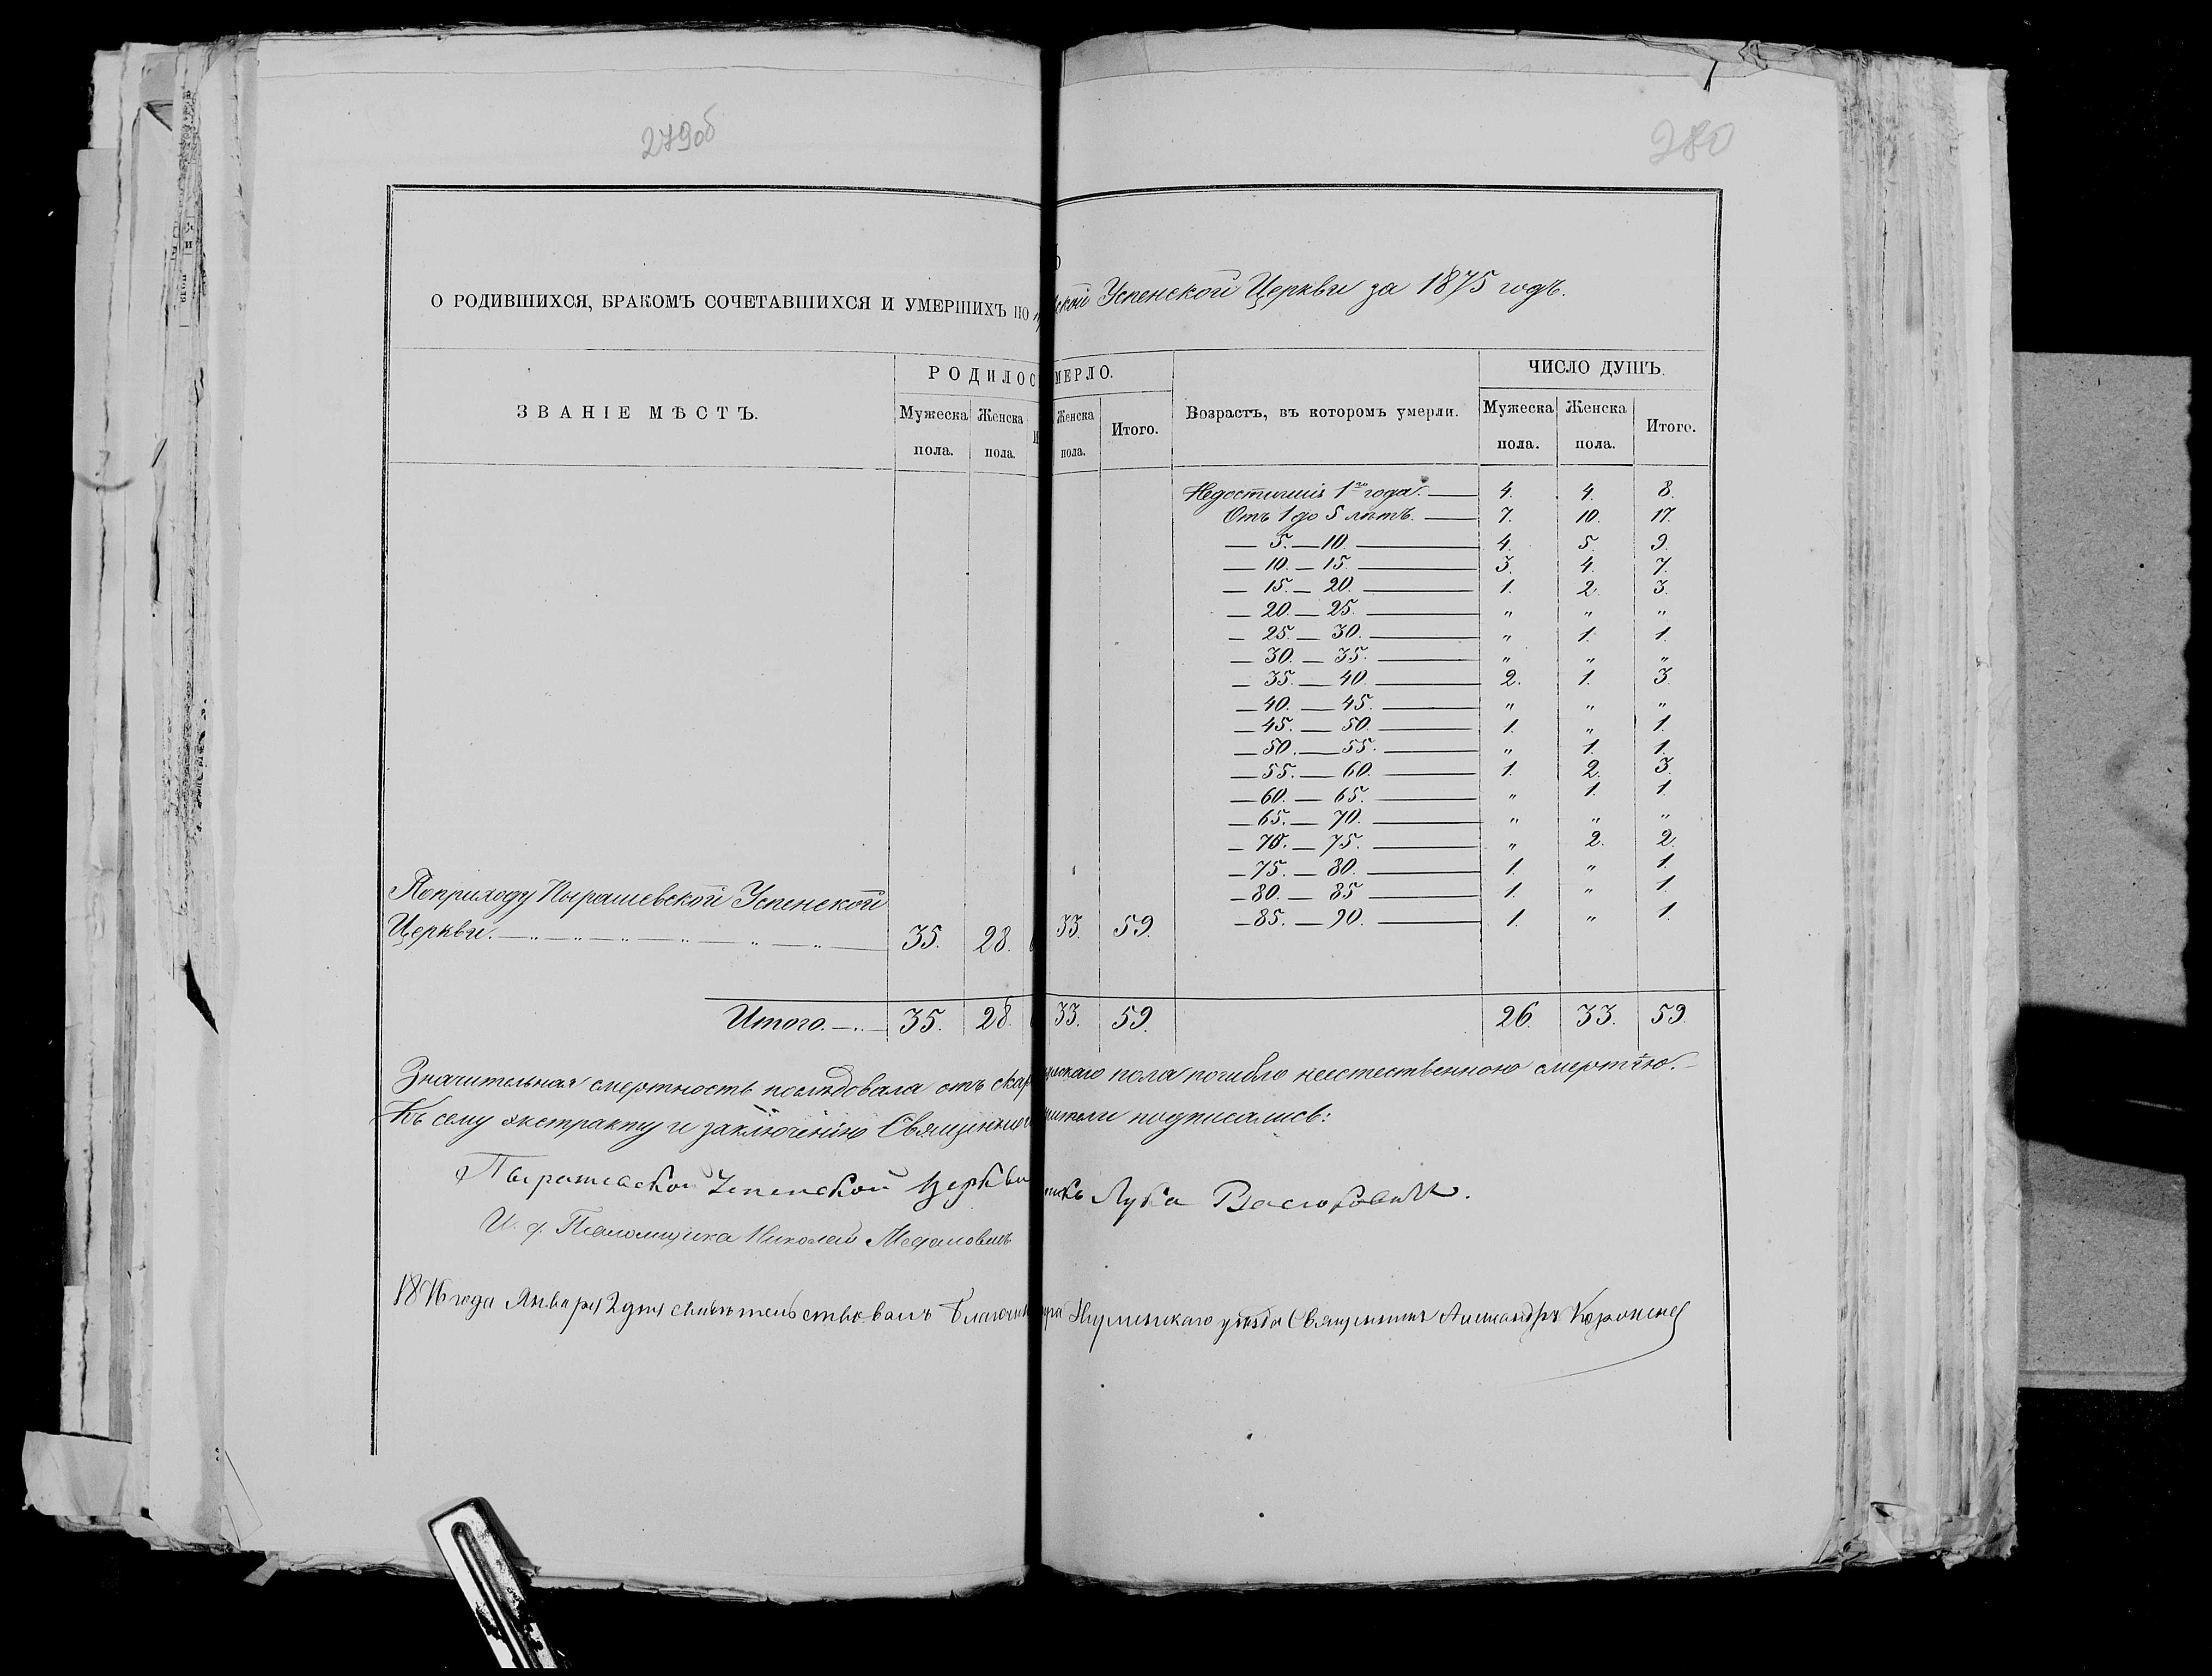 279об
280
О РОДИВШИХСЯ, БРАКОМЪ СОЧЕТАВШИХСЯ И УМЕРШИХЪ ПО
ской Успенской Церкви за 1875 годъ.
ЗВАНІЕ МѢСТЪ.
РОДИЛОС
Мужеска пола.
Женска пола.
МЕРЛО.
Женска пола.
Итого.
Возрастъ, въ которомъ умерли.
ЧИСЛО ДУШЪ.
Мужеска пола.
Женска пола.
Итого.
Недостигшія 1го года. — 4. 4. 8.
Отъ 1 до 5 лѣтъ. — 7. 10. 17.
— 5. — 10. — 4. 5. 9.
— 10. — 15. — 3. 4. 7.
— 15. — 20. — 1. 2. 3.
— 20. — 25. — " " "
— 25. — 30. — " 1. 1.
— 30. — 35. — " " "
— 35. — 40. — 2. 1. 3.
— 40. — 45. — " " "
— 45. — 50. — 1. " 1.
— 50. — 55. — " 1. 1.
— 55. — 60. — 1. 2. 3.
— 60. — 65. — " 1. 1.
— 65. — 70. — " " "
— 70. — 75. — " 2. 2.
— 75. — 80. — 1. " 1.
— 80. — 85 — 1. " 1.
— 85. — 90. — 1. " 1.
По приходу Пырашевской Успенской
Церкви. 35. 28. 33. 59.
Итого. 35. 28. 33. 59. 26. 33. 59.
Значительная смертность послѣдовала отъ скар
ужскаго пола погибло неестественною смертію. —
Къ сему экстракту и заключенію Священно
жители подписались:
Пырашевской Успенской Церкви
никъ Лука Васюкович.
И. д. Псаломщика Николай
1876 года Января 2 дня свидѣтельствовалъ Благочин
Игуменскаго уѣзда Священникъ Александръ